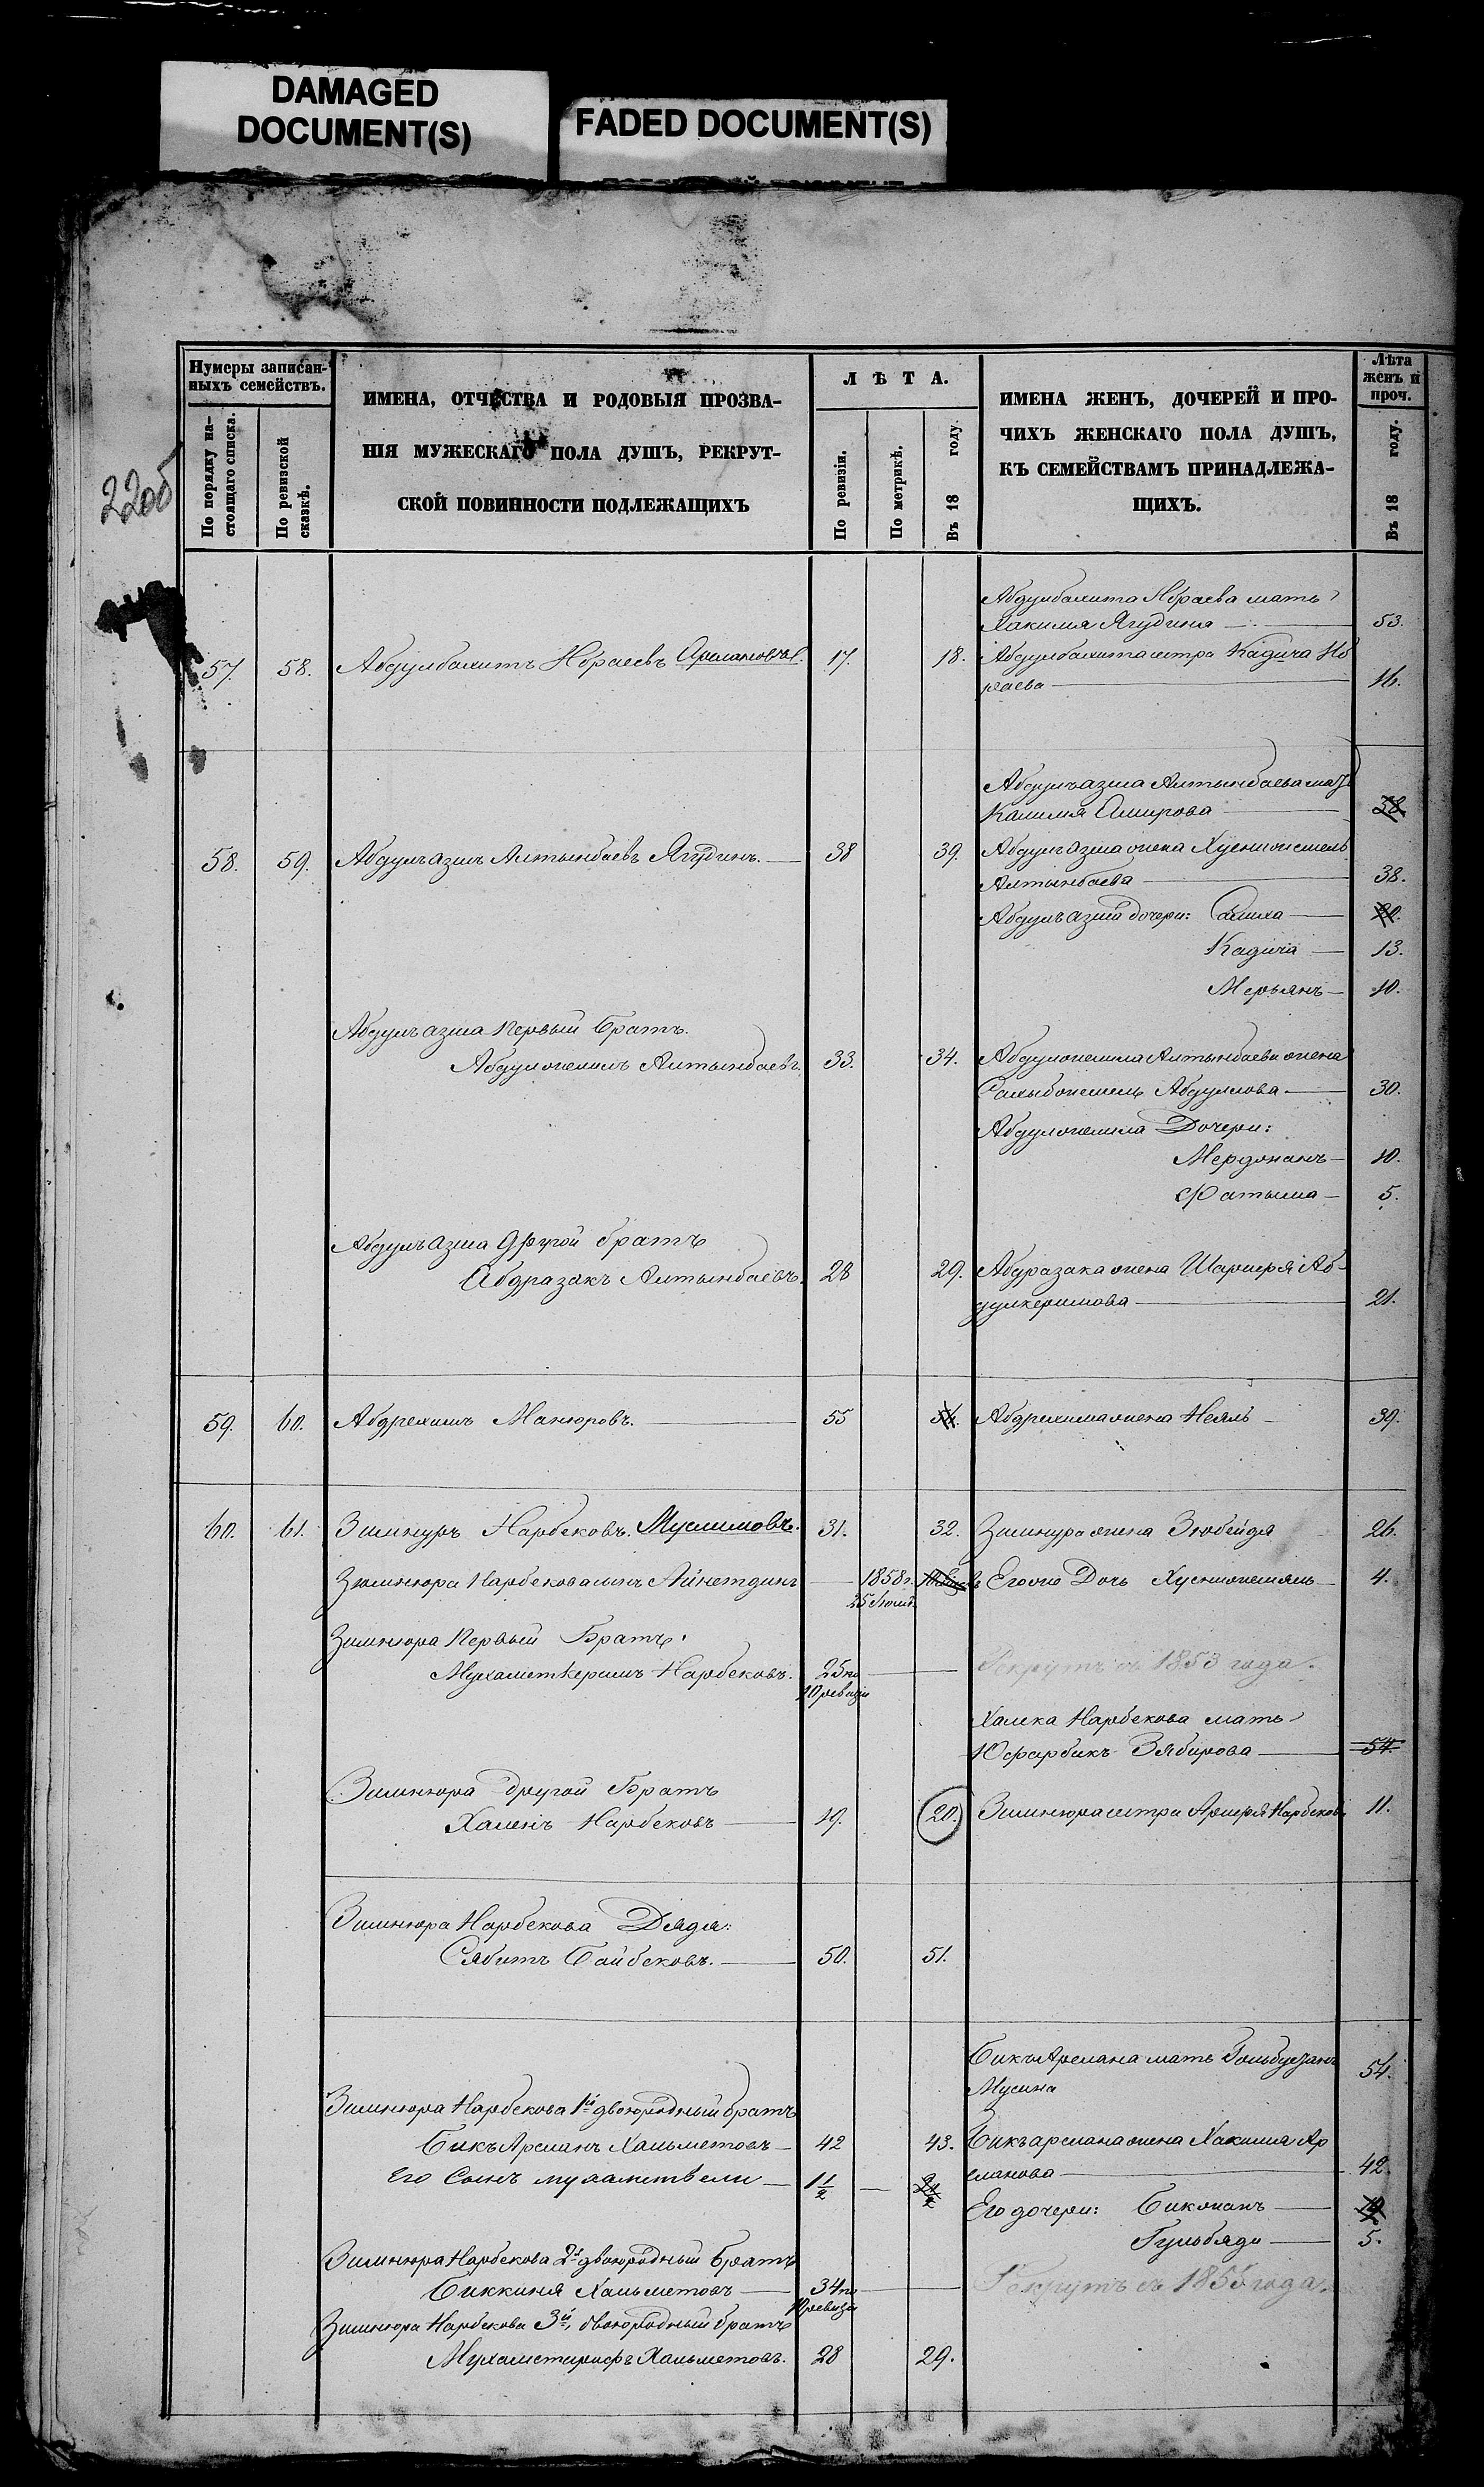 DAMAGED
DOCUMENT(S)
FADED DOCUMENT(S)
220б
Нумеры записан-
ныхъ семействъ.
По порядку на-
стоящаго списка.
По ревизской
сказкѣ.
ИМЕНА, ОТЧЕСТВА И РОДОВЫЯ ПРОЗВА-
НІЯ МУЖЕСКАГО ПОЛА ДУШЪ, РЕКРУТ-
СКОЙ ПОВИННОСТИ ПОДЛЕЖАЩИХЪ
ЛѢТА.
По ревизіи.
По метрикѣ.
Въ 18 году.
ИМЕНА ЖЕНЪ, ДОЧЕРЕЙ И ПРО-
ЧИХЪ ЖЕНСКАГО ПОЛА ДУШЪ,
КЪ СЕМЕЙСТВАМЪ ПРИНАДЛЕЖА-
ЩИХЪ.
Лѣта
женъ и
проч.
Въ 18 году.
Абдулбахита Ибраева мать
Хакимя Ягудина 53.
57. 58. Абдулбахитъ Ибраевъ Арслановъ. 17. 18. Абдулбахита сестра Кадича Иб
раева 16.
Абдулъазма Алтынбаева мать
Калимя Амирова 38.
58. 59. Абдулъазмъ Алтынбаевъ Ягудинъ. 38 39. Абдулъазма жена Хуснижемель
Алтынбаева 38.
Абдулъазма дочери: Салиха
Кадича 13.
Мерьянъ 10.
Абдулъазма первый братъ.
Абдулжелилъ Алтынбаевъ. 33. 34. Абдулжелила Алтынбаева жена
Сахыбжемель Абдулова. 30.
Абдулжелила Дочери:
Мерджанъ 10.
Фатыма 5.
Абдулъазма другой братъ
Абдразакъ Алтынбаевъ. 28 29. Абдразака жена Шарифя Аб-
дулкеримова 21.
59. 60. Абдрехимъ Манюровъ. 55 56. Абдрехима жена Неяль 39.
60. 61. Зилинуръ Нарбековъ. Муслимовъ. 31. 32. Зилинура жена Зюбейдя 26.
Зилинюра Нарбекова сынъ Айнетдинъ 1858 г. Его же Дочь Хуснижемяль 4.
Зилинюра первый Братъ.
Мухаметкеримъ Нарбековъ. 25 по Рекрутъ съ 1853 года.
10 ревизіи
Халика Нарбекова мать
Юфарбикъ Зябирова 54.
Зилинюра другой Братъ
Халикъ Нарбековъ 19. 20. Зилинюра сестра Арифя Нарбекова 11.
Зилинюра Нарбекова Дядя:
Сябитъ Байбековъ. 50. 51.
Бикъ Арслана мать
Мусина 54.
Зилинюра Нарбекова 1й двоюродный братъ
Бикъ Арсланъ Хальметовъ 42 43. Бикъ арслана жена Хакима Ар
сланова 42.
Его Сынъ мухаметвели 1½ 2½
Его дочери: Бикжанъ
Гульбяди 5.
Зилинюра Нарбекова 2й двоюродный братъ
Биккиня Хальметовъ 34 по Рекрутъ съ 1855 года.
10 ревизіи
Зилинюра Нарбекова 3й двоюродный братъ
Мухаметшрифъ Хальметовъ. 28 29.